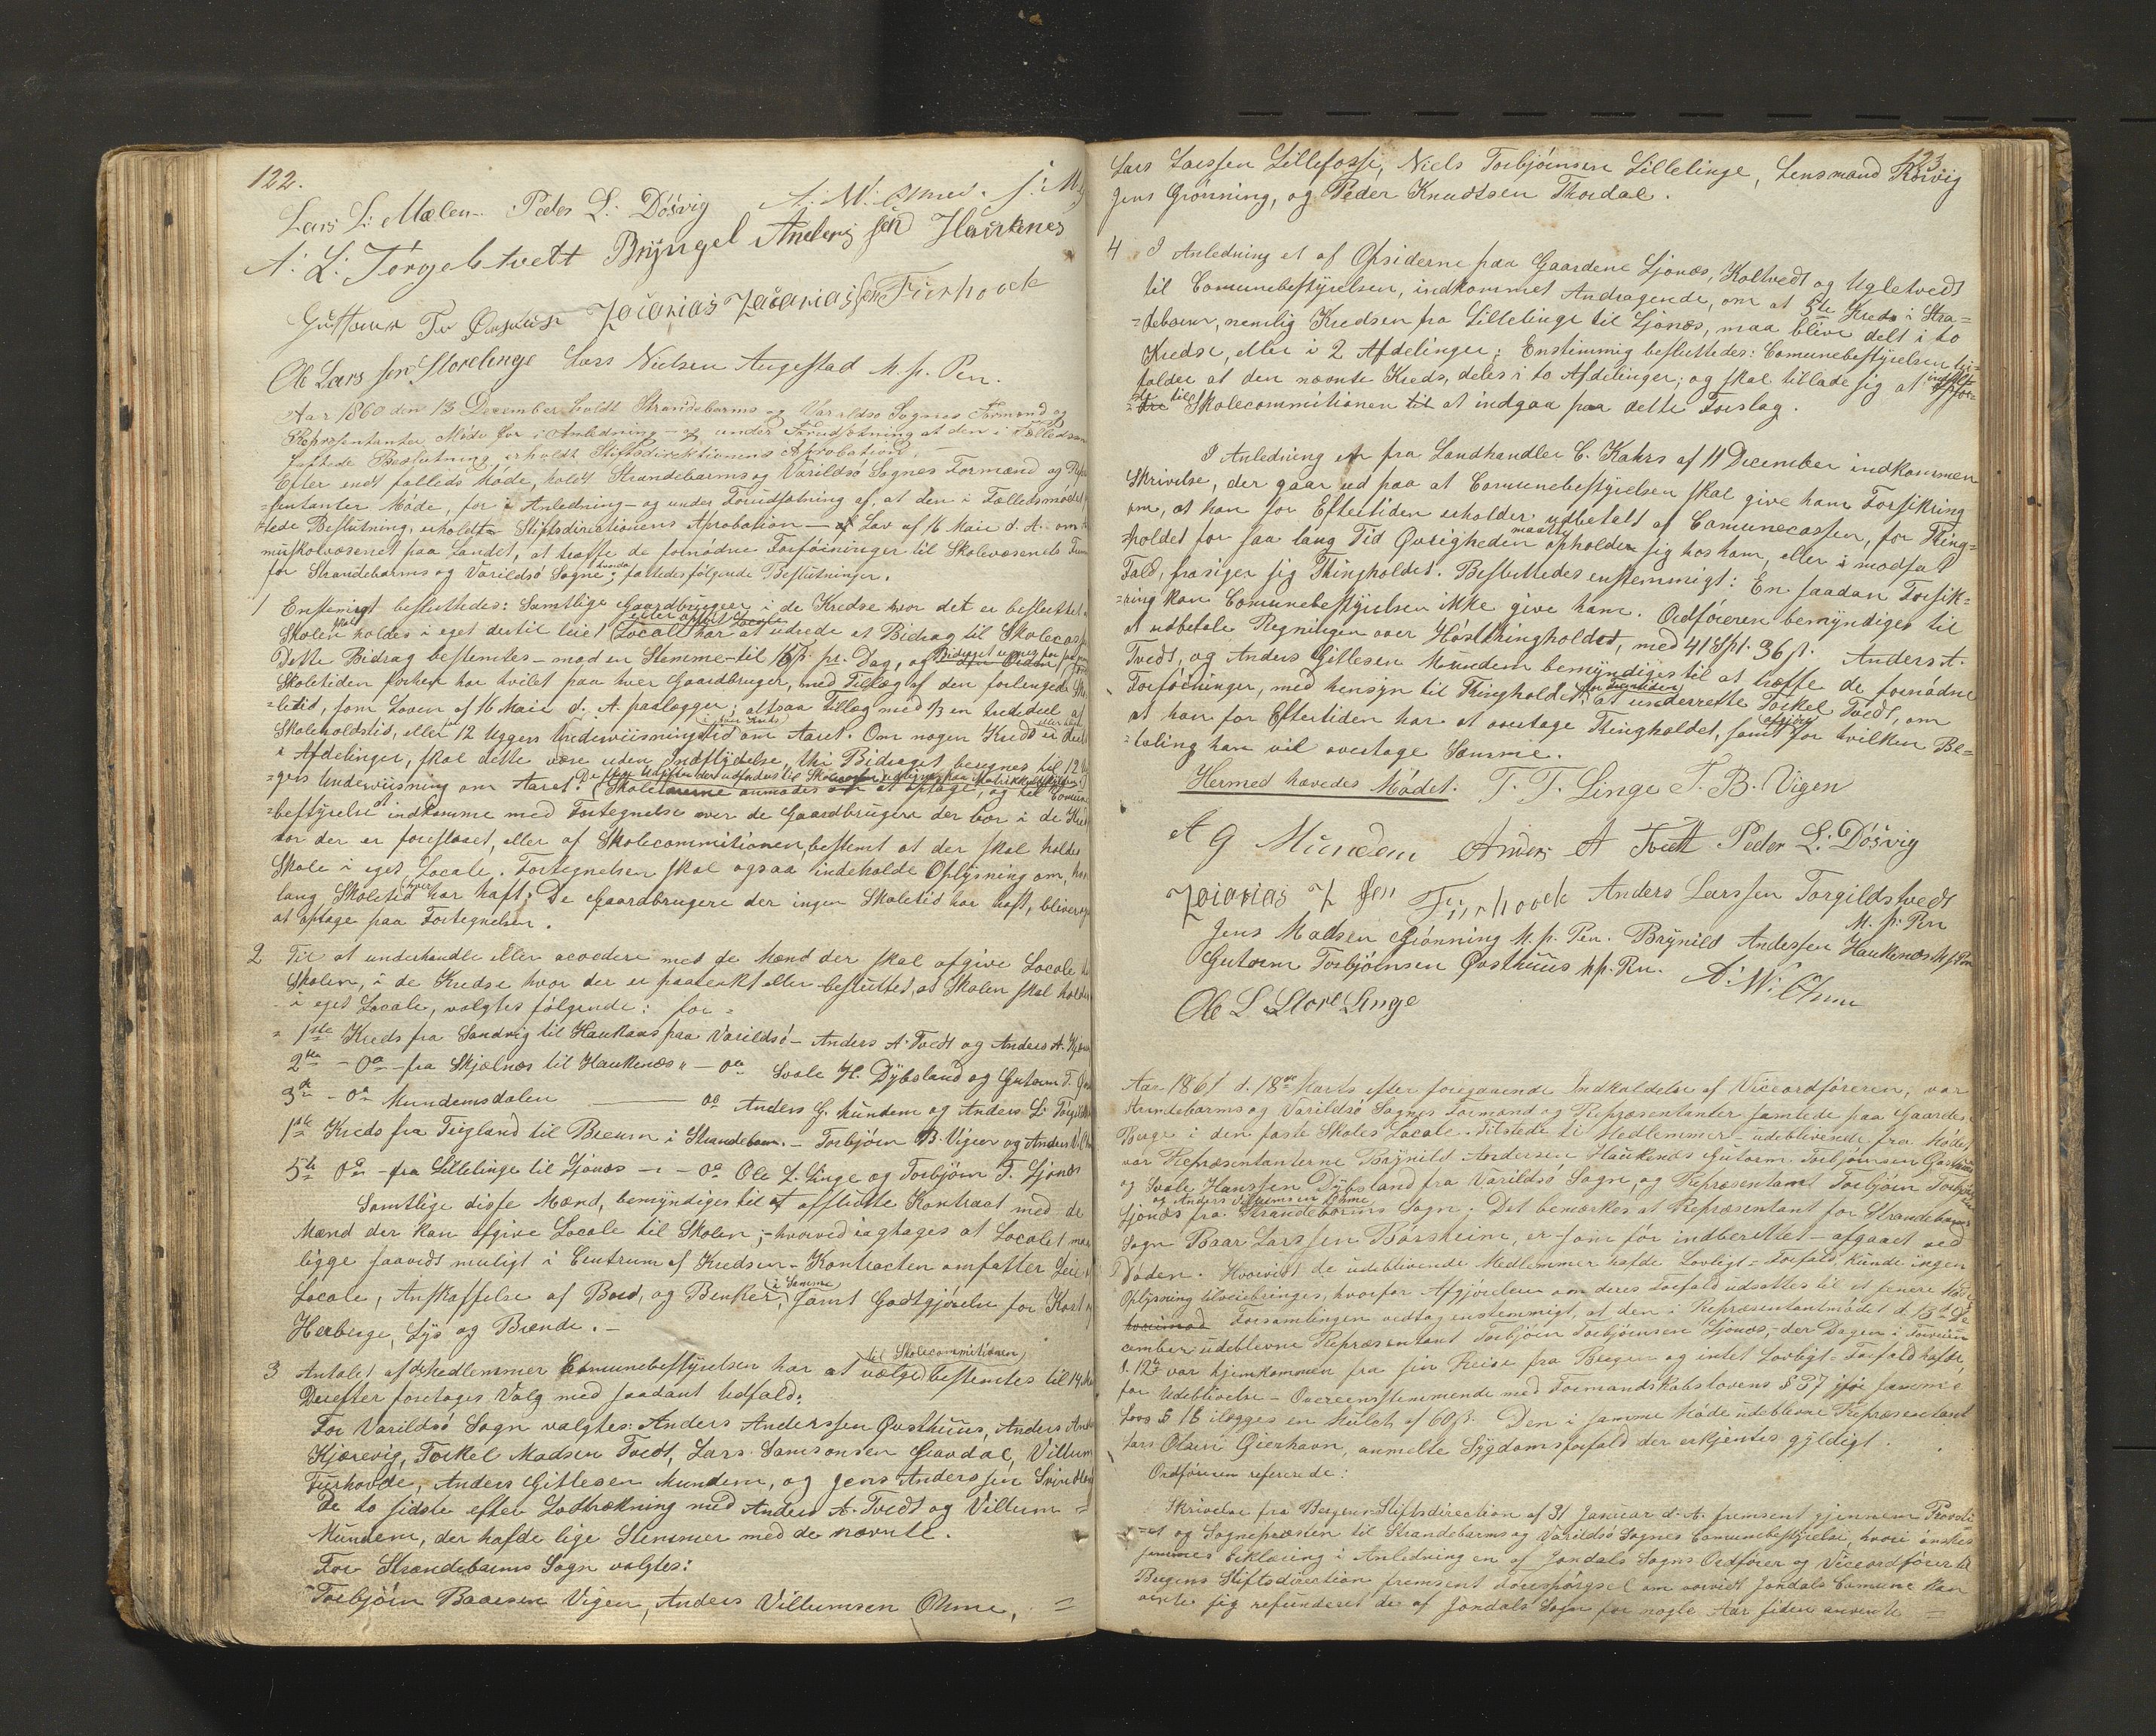 122.
Lars L: Mælen. Peder L: Dösvig A: W: Ohme. J: M
A: L: Torgelstvett Brÿngel Anders sen Haukenes
Guttorm T. Øvsthus Zacarias Zacariassen Furhovde
Ole Lars sen Storelinge Lars Nielsen Augestad M. p. Pen.
Aar 1860 den 13 December holdt Strandebarms og Varaldsø Sognes Formænd og
Repræsentanter Møde for i Anledning - og under Forudsætning at den i Fælleds
fattede Beslutning erholdt Stiftsdirektionens Aprobation.
Efter endt fælleds Møde, holdt Strandebarms og Varildsö Sognes Formænd og Repræ
=sentanter Möde, for i Anledning - og under Forudsætning af, at den i Fælledsmödet
tede Beslutning, erholdt Stiftsdirectionens Aprobation - af Lov af 16 Maie d. A. om
muskolvæsenet paa Landet, at træffe de fornödne Forföininger til Skolevæsenets
for Strandebarms og Varildsö Sogne; hvorda fattedes fölgende Beslutninger.
1 Enstemigt besluttedes: Samtlige Gaardbruger i de Kredse hvor det er besluttet
Skolen skal holdes i eget dertil leiet eller opført Locale Locale har at udrede et Bidrag til Skolecas
Dette Bidrag bestemtes - mod en Stemme - til 16ß pr. Dag, og Bidraget
Skoletiden forhen har hvilet paa hver Gaardbruger, med Tillæg af den forlengede Sko
letid, som Loven af 16 Maie d. A. paalægger; altsaa Tillæg med 1/3 en trediedeel af
Skoleholdstid, eller 12 Uggers Underviisningstid i hver Kreds om Aaret. Om nogen Kreds er deelt
i Afdelinger, skal dette være uden Indflÿdelse, thi Bidraget beregnes til 12 U
=gers Underviisning om Aaret. Skole anmodes at optage, og til Comune
=bestyrelsen at indkomme med Fortegnelse over de Gaardbrugere der bor i de Kred
vor der er foreslaaet, eller af Skolecommitionen, bestemt at der skal holdes
Skole i eget Locale. Fortegnelsen skal ogsaa indeholde Oplÿsning om, hvor
lang Skoletid hver har haft; De Gaardbrugere der ingen Skoletid har haft, bliver og
at optage paa Fortegnelsen.
2 Til at underhandle eller accordere med de Mænd der skal afgive Locale
Skolen, i de Kredse hvor der er paatænkt eller besluttet, at Skolen skal holdes
i eget Locale, valgtes fölgende: for =
1ste Kreds fra Sandvig til Haukaas paa Varildsö - Anders A. Tvedt og Anders A. Kjær
2den - Do - fra Skjelnæs til Haukenæs " - do Svale H. Dÿbsland og Gutorm T.
3de - Do Mundemsdalen — do Anders G. Mundem og Anders L. Torgils
1ste Kreds fra Teigland til Breum i Strandebarm. - Torbjörn B. Vigen og Anders V. Oh
5te Do - fra Lillelinge til Ljonæs - - Do Ole L. Linge og Torbjörn T. Ljonæs
Samtlige disse Mænd, bemÿndiges til at afslutte Kontract med de
Mænd der kan afgive Locale til Skolen; - hvorved iagttages at Localet maa
ligge saavidt muligt i Centrum af Kredsen. Kontracten omfatter Leie
Locale, Anskaffelse af Bord, og Benker i Samme, samt Godtgjörelse for Kost og
Herberge, Lÿs og Brænde. -
3 Antalet af de Medlemmer Comunebestÿrelsen har at vælge til Skolecommitionen bestemtes til 14
Derefter foretoges Valg med saadant Udfald:
For Varildsö Sogn valgtes: Anders Anderssen Qvsthuus, Anders And
Kjærevig, Torkel Madsen Tvedt, Lars Samsonsen Gravdal, Villum
Furhovde, Anders Gitlesen Mundem, og Jens Anderssen
De to sidste efter Lodtrækning med Anders A. Tvedt og Villum =
Mundem, der hafde lige Stemmer med de nævnte.
For Strandebarms Sogn valgtes:
Torbjörn Baarsen Vigen, Anders Villumsen Ohme, =
123
Lars Larssen Lillefosse, Niels Torbjörnsen Lillelinge, Lensmand Rörvig
Jens Grönning, og Peder Knudtsen Thordal.
4 I Anledning et af Opsiderne paa Gaardene Ljonæs, Koltvedt og Ugletvedt
til Comunebestÿrelsen, indkommet Andragende, om at 5te Kreds i Stra=
=debarm, nemlig Kredsen fra Lillelinge til Ljonæs, maa blive delt i to
Kredse, eller i 2 Afdelinger; Enstimmig besluttedes: Comunebestÿrelsen til=
=holder at den nævnte Kreds, deles i to Afdelinger; og skal tillade sig at
til Skolecommitionen til at indgaa paa dette Forslag.
I Anledning en fra Landhandler C. Kahrs af 11 December indkommen
Skrivelse, der gaar ud paa at Comunebestÿrelsen skal give ham Forsikring
om, at han for Eftertiden erholder udbetalt af Comunecassen, for Thing=
=holdet for saa lang Tid Øvrigheden maatte opholder sig hos ham, eller i modsat
Fald, frasiger sig Thingholdet. Besluttedes enstemmigt: En saadan Forsik=
=ring kan Comunebestÿrelsen ikke give ham. Ordföreren bemyndiges til
at udbetale Regningen over Höstthingholdet, med 41 Spd. 36 ß. Anders A.
Tvedt, og Anders Gitlesen Mundem bemÿndiges til at træffe de fornödne
Forföininger, med hensÿn til Thingholdet for Fremtiden; at underrette Torkel Tvedt, om
at han for Eftertiden har at overtage Thingholdet, samt afgjøre for hvilken Be=
=taling han vil overtage Samme.
Hermed hævedes Mödet. T. T. Linge T. B. Vigen
A G Mundem Anders A Tvett Peder L: Dösvig
Zacarias Z sen Furhovde Anders Larssen Torgildstvedt
M. p. Pen
Jens Madsen Grönning M. p. Pen. Brÿnild Andersen Haukenæs M p Pen
Gutorm Torbjörnsen Øvsthuus M p. Pen. A: W: Ohme
Ole L Store Linge
Aar 1861 d. 18de Marts efter foregaaende Indkaldelse af Viceordföreren, var
Strandebarms og Varildsö Sognes Formænd og Repræsentanter samlede paa Gaarden
Berge i den faste Skoles Locale. Tilstede ti Medlemmer - udeblivende fra Mödet
var Repræsentanterne Brÿnild Andersen Haukenæs Gutorm Torbjörnsen
og Svale Hanssen Dÿbsland fra Varildsö Sogn, og Repræsentant Torbjörn Torbjörnsen
Ljonæs og Anders Villumsen Ohme fra Strandebarms Sogn. Det bemærkes at Repræsentant for Strandebarms
Sogn Baar Larssen Børsheim, er som för indberettet - afgaaet ved
Döden. Hvorvidt de udeblivende Medlemmer hafde Lovligt-Forfald, kunde ingen
Oplÿsning tilveiebringes, hvorfor Afgjörelsen om deres Forfald udsattes til et senere Möde
Forsamlingen vedtog enstemmigt, at den i Repræsentantmödet d. 13d De
cember udeblevne Repræsentant Torbjörn Torbjörnsen Ljonæs, - der Dagen i Forveien
d. 12te var hjemkommen fra sin Reise fra Bergen og intet Lovligt-Forfald hafde,
for Udeblivelse - Overeensstemmende med Formandskabslovens § 37 jfr samme
Lovs § 18 ilægges en Mulct af 60 ß. Den i samme Möde udeblevne Repræsentant
Lars Olsen Gierhavn, anmelte Sÿgdomsforfald der erkjentes gÿldigt.
Ordföreren refererede:
Skrivelse fra Bergens Stiftsdirection af 31 Januar d. A. fremsent gjennem Provsti
=et og Sognepræsten til Strandebarms og Varildsö Sognes Comunebestÿrelse, hvori önskes
sammes Erklæring i Anledning en af Jondals Sogns Ordförer og Viceordförer til
Bergens Stiftsdirection fremsent Forespörgsel om hvorvidt Jondals Comune kan
vente sig refunderet de af Jondals Sogn for nogle Aar siden anvente =